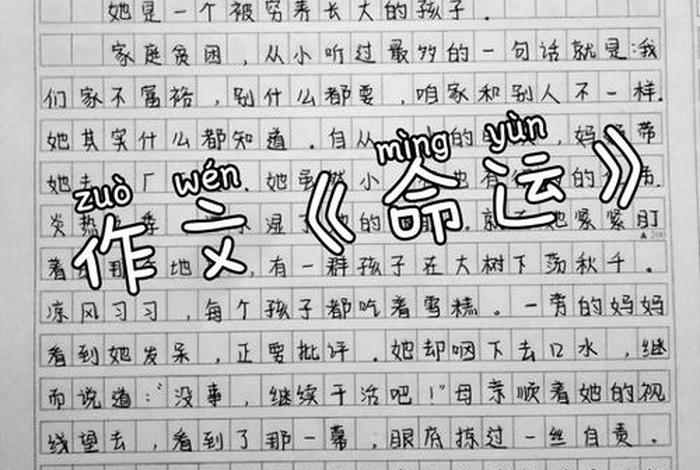 她是一个被穷养长大的孩子.
家庭贫困,从小听过最多的一句话就是:我
们家不富裕,别什么都要,咱家和别人不一样.
她其实什么都知道.自从 的 妈 带
zuò wén mìng yùn
作文《命运》
她 厂 .她虽然小 也有 的
炎热 季 湿了 的 就 她紧紧盯
着 那 地 ,有一群孩子在大树下荡秋千.
凉风习习,每个孩子都吃着雪糕.一旁的妈妈
看到她发呆,正要批评.她却咽下去口水,继
而说道:"没事,继续干活吧!"母亲顺着她的视
线望去,看到了那一幕,眼底掠过一丝自责.